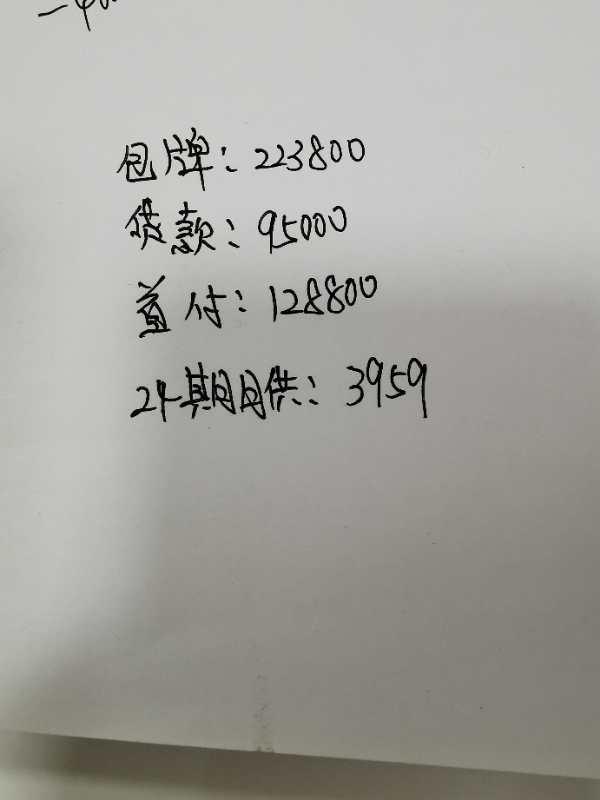 包牌：223800
贷款：95000
首付：128800
24期月供：3959